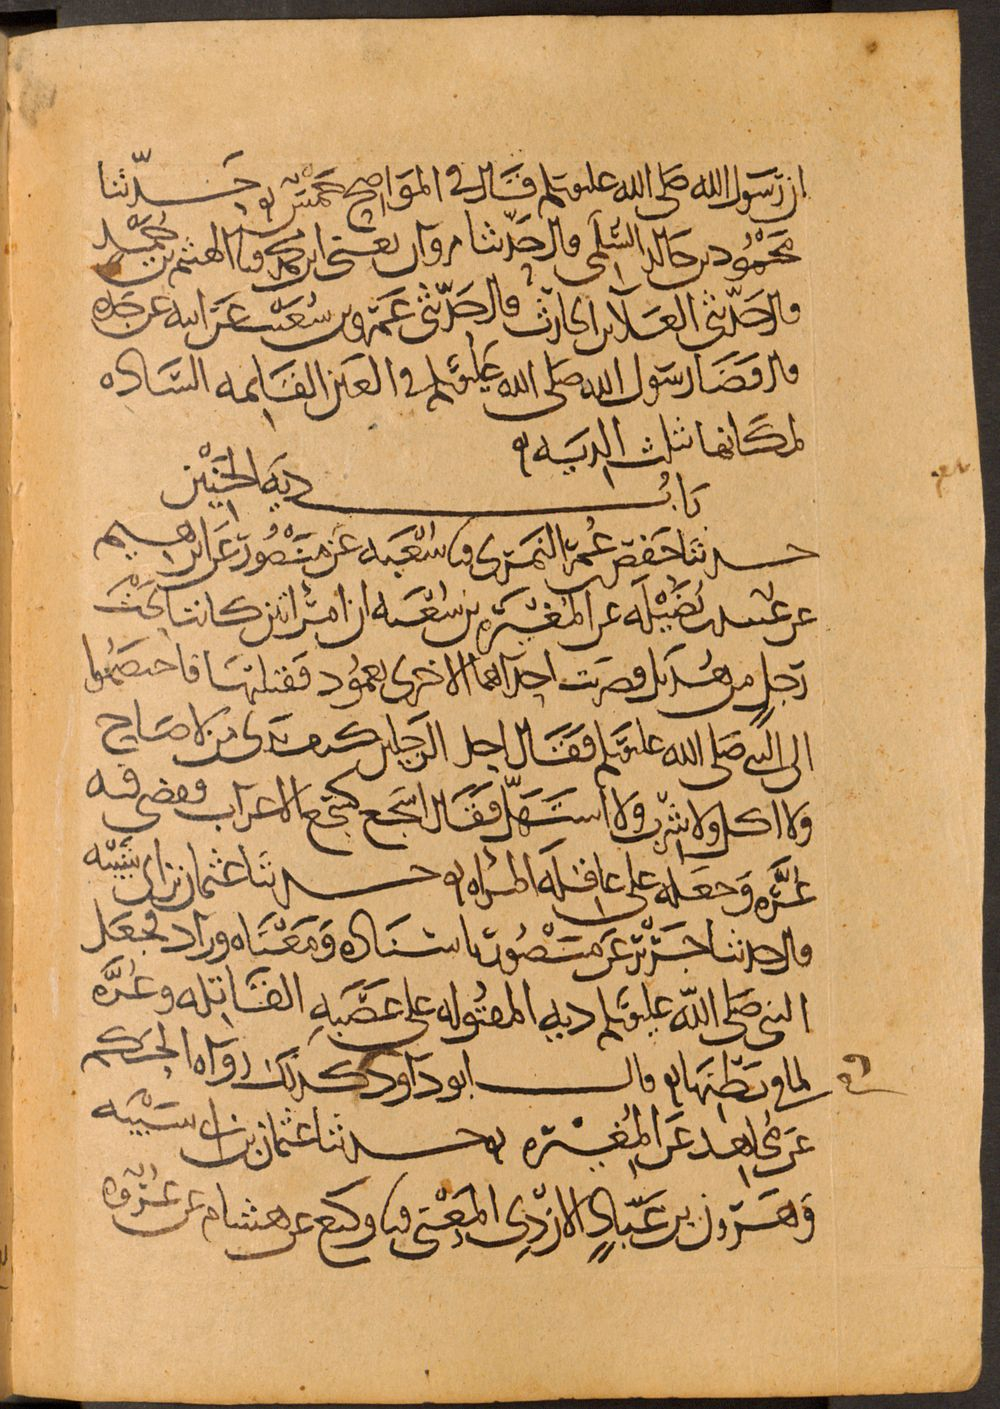 ان رسول الله صلى الله عليه وسلم قال في المواضح خمس حدثنا
محمود بن خالد السلمي قال حدثنا مروان يعني ابن محمد ثنا الهيثم بن حميد
قال حدثني العلا بن الحارث قال حدثني عمرو بن شعيب عن ابيه عن جده
قال قضا رسول الله صلى الله عليه وسلم في العين القايمه السادة
لمكانها بثلث الدية
باب دية الجنين
حدثنا حفص بن عمر النمري ثنا شعبه عن منصور عن ابرهيم
عن عبيد بن نضيلة عن المغيرة بن شعبه ان امراتين كانتا تحت
رجل من هذيل فضربت احداهما الاخرى بعمود فقتلتها فاختصموا
الى النبي صلى الله عليه وسلم فقال احد الرجلين كيف ندي من لا صاح
ولا اكل ولا شرب ولا استهل فقال اسجع كسجع الاعراب فقضى فيه
غرة وجعله على عاقلة المراه حدثنا عثمان بن ابي شيبه
قال حدثنا جرير عن منصور باسناده ومعناه وزاد فجعل
النبي صلى الله عليه وسلم دية المقتوله على عصبة القاتله وغرة
لما في بطنها قال ابو داود كذلك رواه الحكم
عن مجاهد عن المغيرة حدثنا عثمان بن ابي شيبه
وهرون بن عباد الازدي المعنى ثنا وكيع عن هشام عن عروه